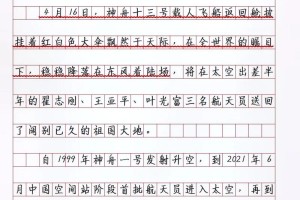 4月16日，神舟十三号载人飞船返回舱披
挂着红白色大伞飘然于天际，在全世界的瞩目
下，稳稳降落在东风着陆场，将在太空出差半
年的翟志刚、王亚平、叶光富三名航天员送回
了阔别已久的祖国大地。
自1999年神舟一号发射升空，到2021年6
月中国空间站阶段首批航天员进入太空，再到